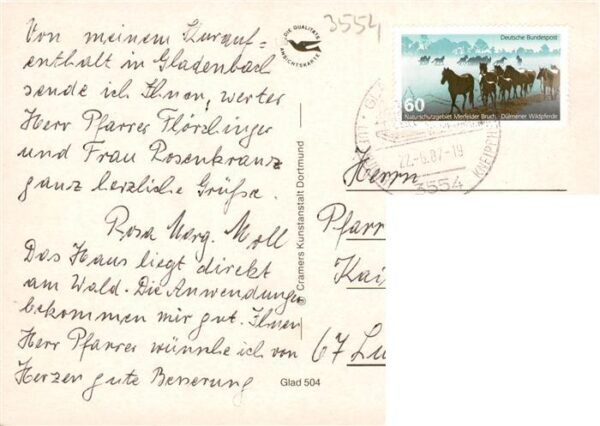 Von meinem Kurauf=
enthalt in Gladenbach
sende ich Ihnen, werter
Herr Pfarrer Flörchinger
und Frau Rosenkranz
ganz herzliche Grüße.
Rosa Marg. Moll
Das Haus liegt direkt
am Wald. Die Anwendungen
bekommen mir gut. Ihnen
Herr Pfarrer wünsche ich von
Herzen gute Besserung
DIE QUALITÄTS
ANSICHTSKARTE
© Cramers Kunstanstalt Dortmund
Glad 504
3554
Deutsche Bundespost
60
Naturschutzgebiet Merfelder Bruch · Dülmener Wildpferde
22.-6.87-19
3554
Herrn
Pfarr
Kai
67 Lu